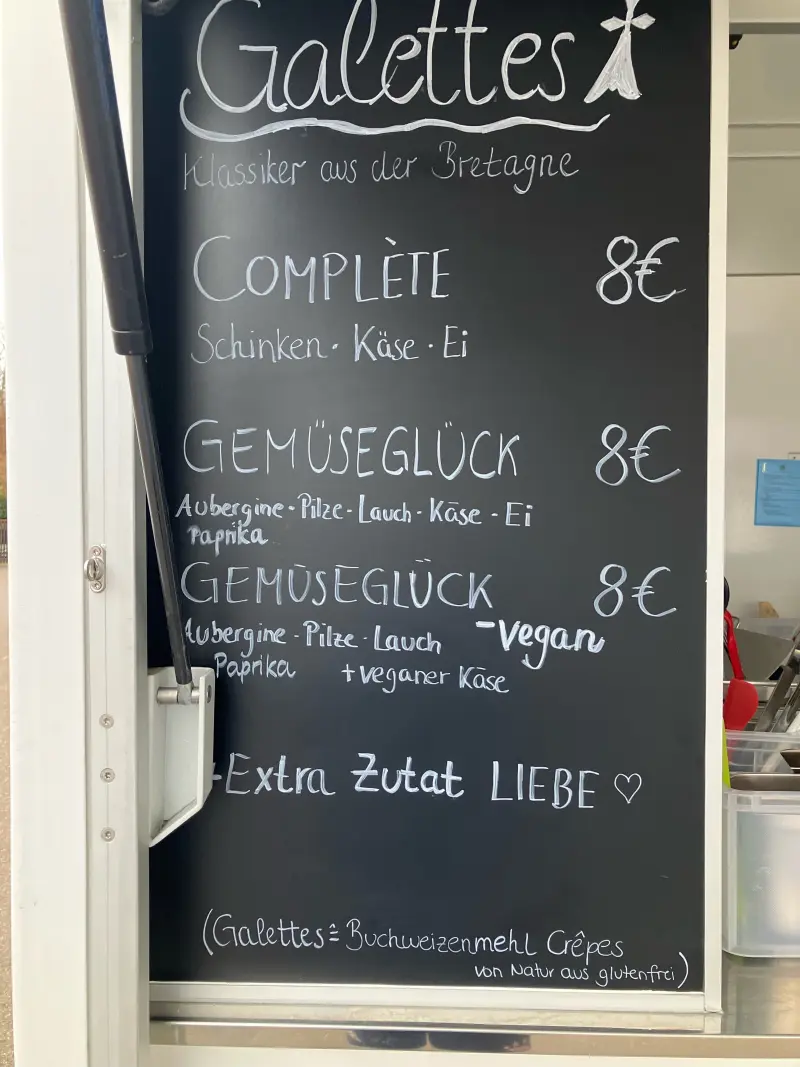 Galettes
Klassiker aus der Bretagne
COMPLÈTE 8€
Schinken · Käse · Ei
GEMÜSEGLÜCK 8€
Aubergine - Pilze - Lauch - Käse - Ei
Paprika
GEMÜSEGLÜCK 8€
Aubergine - Pilze - Lauch - vegan
Paprika + veganer Käse
+Extra Zutat LIEBE ♡
(Galettes ≙ Buchweizenmehl Crêpes
von Natur aus glutenfrei)